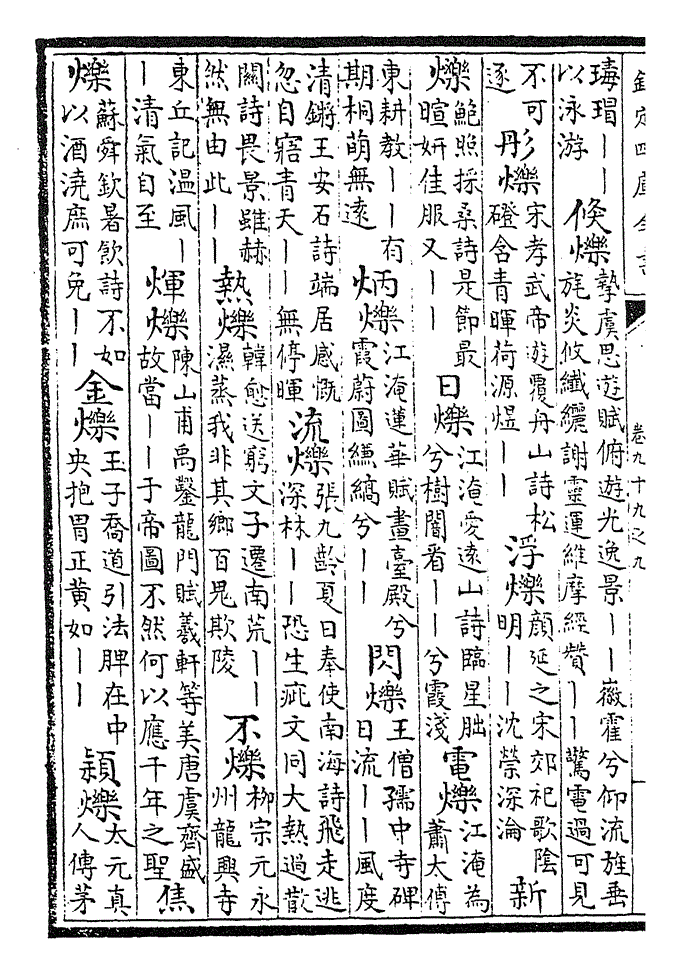 欽定四庫全書
卷九十九之九
瑇瑁｜｜以泳游 倏爍 摯虞思遊賦俯遊光逸景｜｜徽霍兮仰流旌垂旄炎攸纖纚謝靈運維摩經贊｜｜驚電過可見
不可逐 彤爍 宋孝武帝遊覆舟山詩松磴含青暉荷源煜｜｜ 浮爍 顔延之宋郊祀歌陰明｜｜沈禜深淪 新
爍 鮑照採桑詩是節最暄妍佳服又｜｜ 日爍 江淹愛遠山詩臨星朏兮樹闇看｜｜兮霞淺 電爍 江淹為蕭太傅
東耕教｜｜有期桐萌無遠 炳爍 江淹蓮華賦畫臺殿兮霞蔚圖縑縞兮｜｜ 閃爍 王僧孺中寺碑日流｜｜風度
清鏘王安石詩端居感慨忽自寤青天｜｜無停暉 流爍 張九齡夏日奉使南海詩飛走逃深林｜｜恐生疵文同大熱過散
關詩畏景雖赫然無由此｜｜ 熱爍 韓愈送窮文子遷南荒｜｜濕蒸我非其鄉百鬼欺陵 不爍 柳宗元永州龍興寺
東丘記温風｜｜清氣自至 煇爍 陳山甫禹鑿龍門賦羲軒等美唐虞齊盛故當｜｜于帝圖不然何以應千年之聖 焦
爍 蘇舜欽暑飲詩不如以酒澆庶可免｜｜ 金爍 王子喬道引法脾在中央抱胃正黄如｜｜ 穎爍 太元真人傳茅